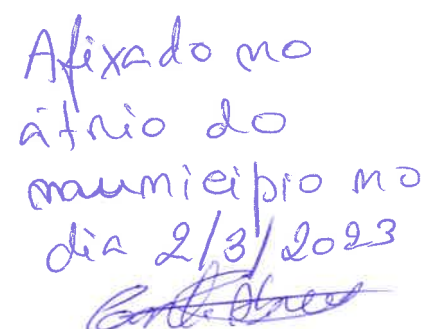 Afixado no
átrio do
município no
dia 2/3/2023